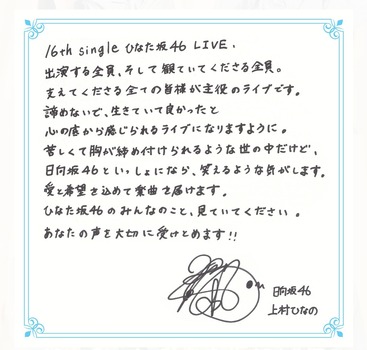 16th single ひなた坂46 LIVE.
出演する全員、そして観ていてくださる全員。
支えてくださる全ての皆様が主役のライブです。
諦めないで、生きていて良かったと
心の底から感じられるライブになりますように。
苦しくて胸が締め付けられるような世の中だけど、
日向坂46といっしょになら、笑えるような気がします。
愛と希望を込めて楽曲を届けます。
ひなた坂46のみんなのこと、見ていてください。
あなたの声を大切に受けとめます!!
日向坂46
上村ひなの